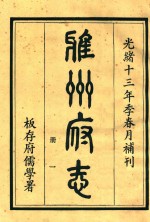 光緒十三年季春月補刊
雅州府志
冊一
板存府儒學署